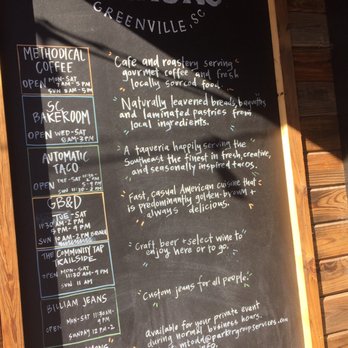 GREENVILLE, SC
METHODICAL
COFFEE
OPEN MON-SAT
7 AM - 5 PM
SUN 9 AM - 5 PM
Cafe and roastery serving
gourmet coffee and fresh
locally sourced food.
SC
BAKEROOM
OPEN WED-SAT
8AM-3PM
Naturally leavened breads, baguettes
and laminated pastries from
local ingredients.
AUTOMATIC
TACO
OPEN
SUN 11-
A taqueria happily serving the
Southeast the finest in fresh, creative,
and seasonally inspired tacos.
GB&D
TUE-SAT
11:30 AM-2 PM
5 PM-9 PM
SUN 10 AM-2 PM BRUNCH
Fast, casual American cuisine that
is predominantly golden-brown +
always delicious.
THE COMMUNITY TAP
TRAILSIDE
OPEN MON-SAT
11:30 AM-9 PM
SUN 11
Craft beer + select wine to
enjoy here or to go.
BILLIAM JEANS
OPEN MON-SAT
SUNDAY 12 PM-
Custom jeans for all people.
available for your private event
during normal business hours.
mtodd@parkergroupservices.com